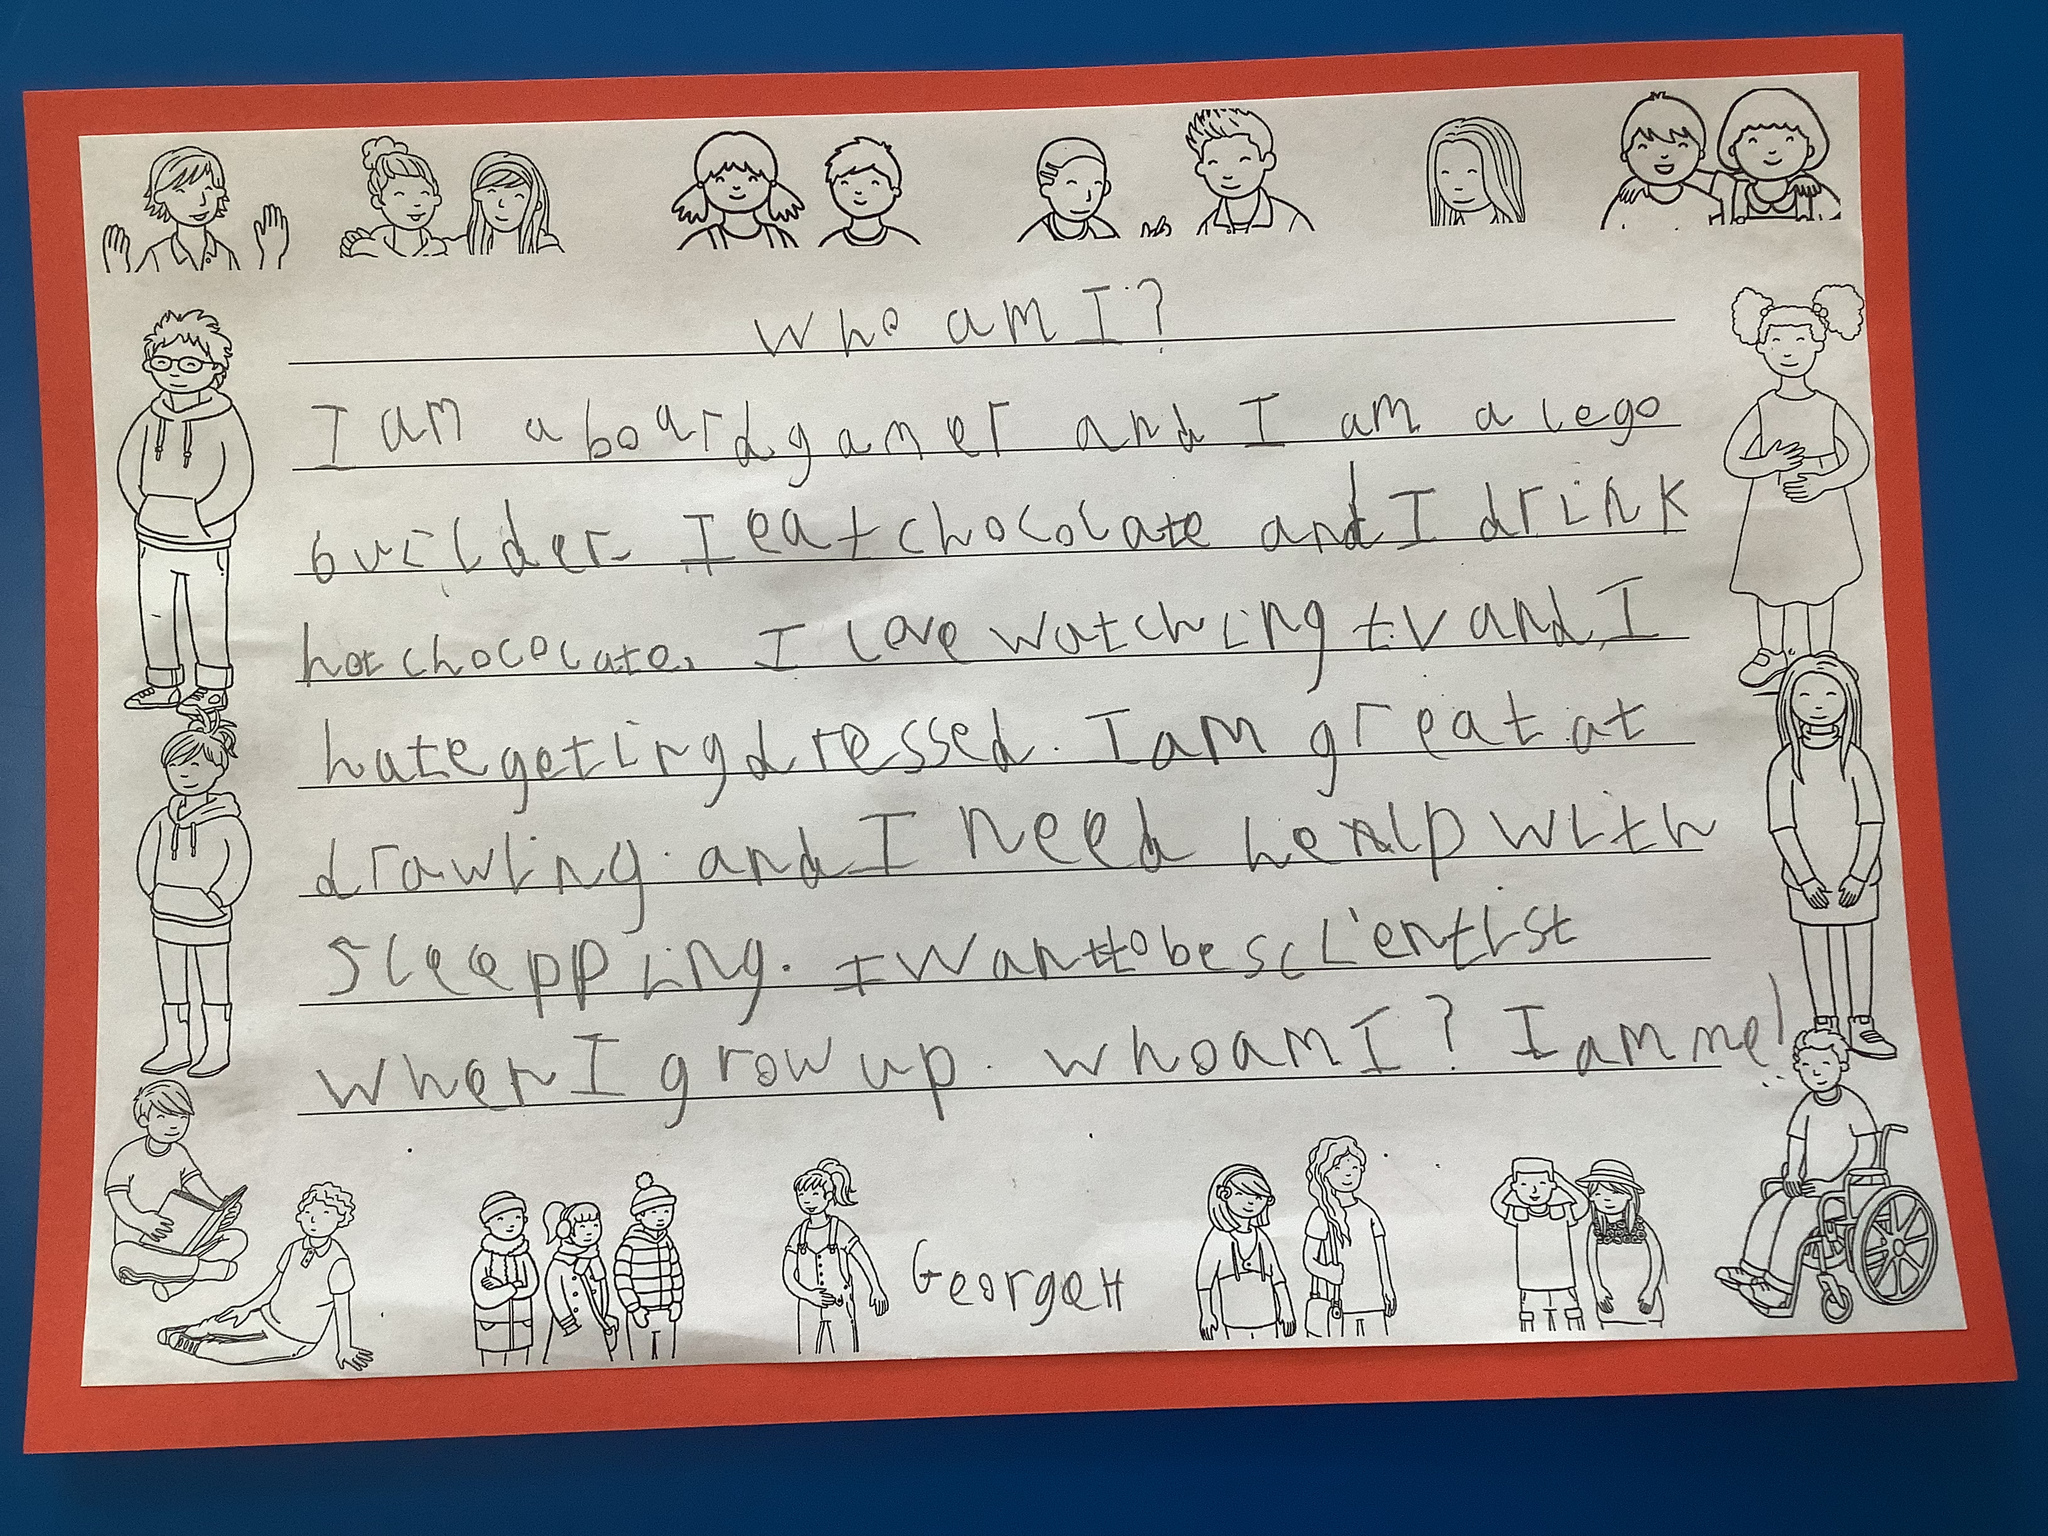 Who am I?
I am a boardgamer and I am a lego
builder. I eat chocolate and I drink
hot chocolate. I love watching t.v and I
hate geting dressed. I am great at
drawing. and I need help with
sleepping. I want to be scientist
when I grow up. who am I? I am me!
George H